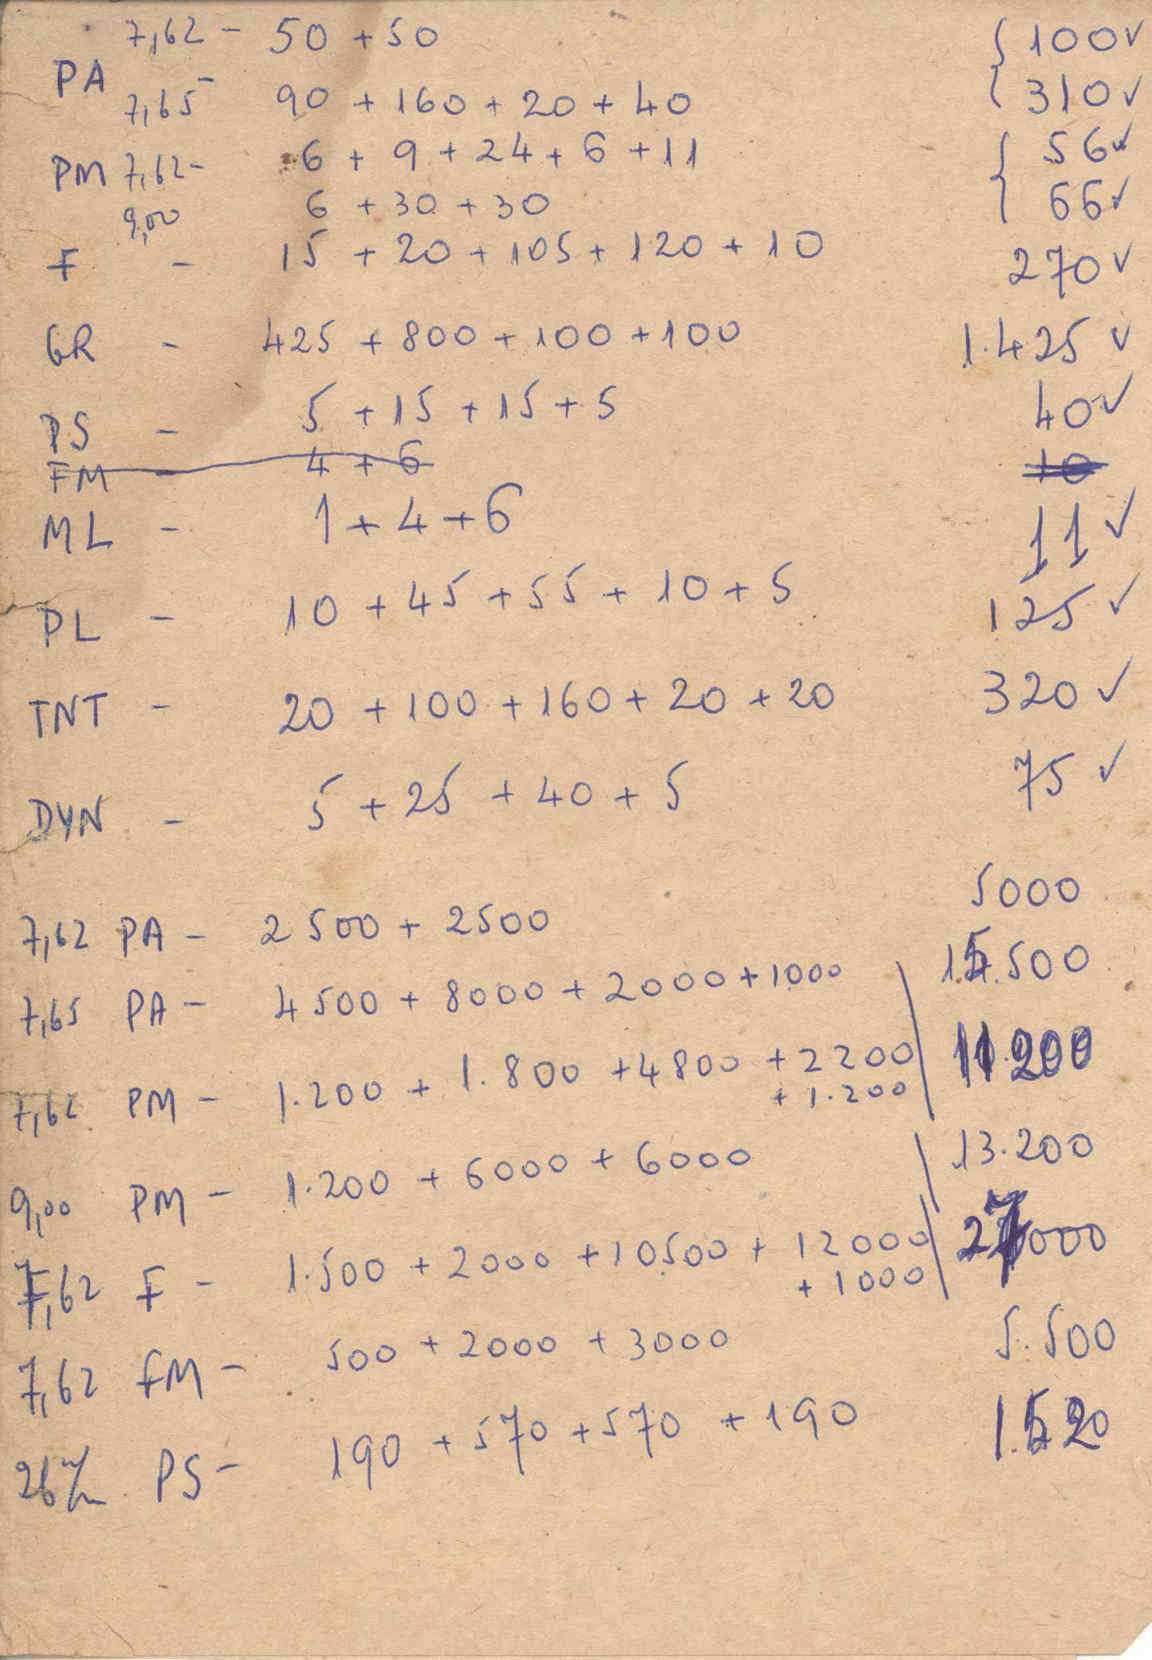 7,62 - 50 + 50 { 100 ✓
PA
7,65 - 90 + 160 + 20 + 40 310 ✓
PM 7,62 - 6 + 9 + 24 + 6 + 11 { 56 ✓
9,00 6 + 30 + 30 66 ✓
F - 15 + 20 + 105 + 120 + 10 270 ✓
GR - 425 + 800 + 100 + 100 1.425 ✓
PS - 5 + 15 + 15 + 5 40 ✓
FM - 4 + 6 10
ML - 1 + 4 + 6 11 ✓
PL - 10 + 45 + 55 + 10 + 5 125 ✓
TNT - 20 + 100 + 160 + 20 + 20 320 ✓
DYN - 5 + 25 + 40 + 5 75 ✓
7,62 PA - 2500 + 2500 5000
7,65 PA - 4500 + 8000 + 2000 + 1000 15.500
7,62 PM - 1.200 + 1.800 + 4800 + 2200 11.200
+ 1.200
9,00 PM - 1.200 + 6000 + 6000 13.200
7,62 F - 1.500 + 2000 + 10500 + 12000 27000
+ 1000
7,62 FM - 500 + 2000 + 3000 5.500
26 m/m PS - 190 + 570 + 570 + 190 1.520